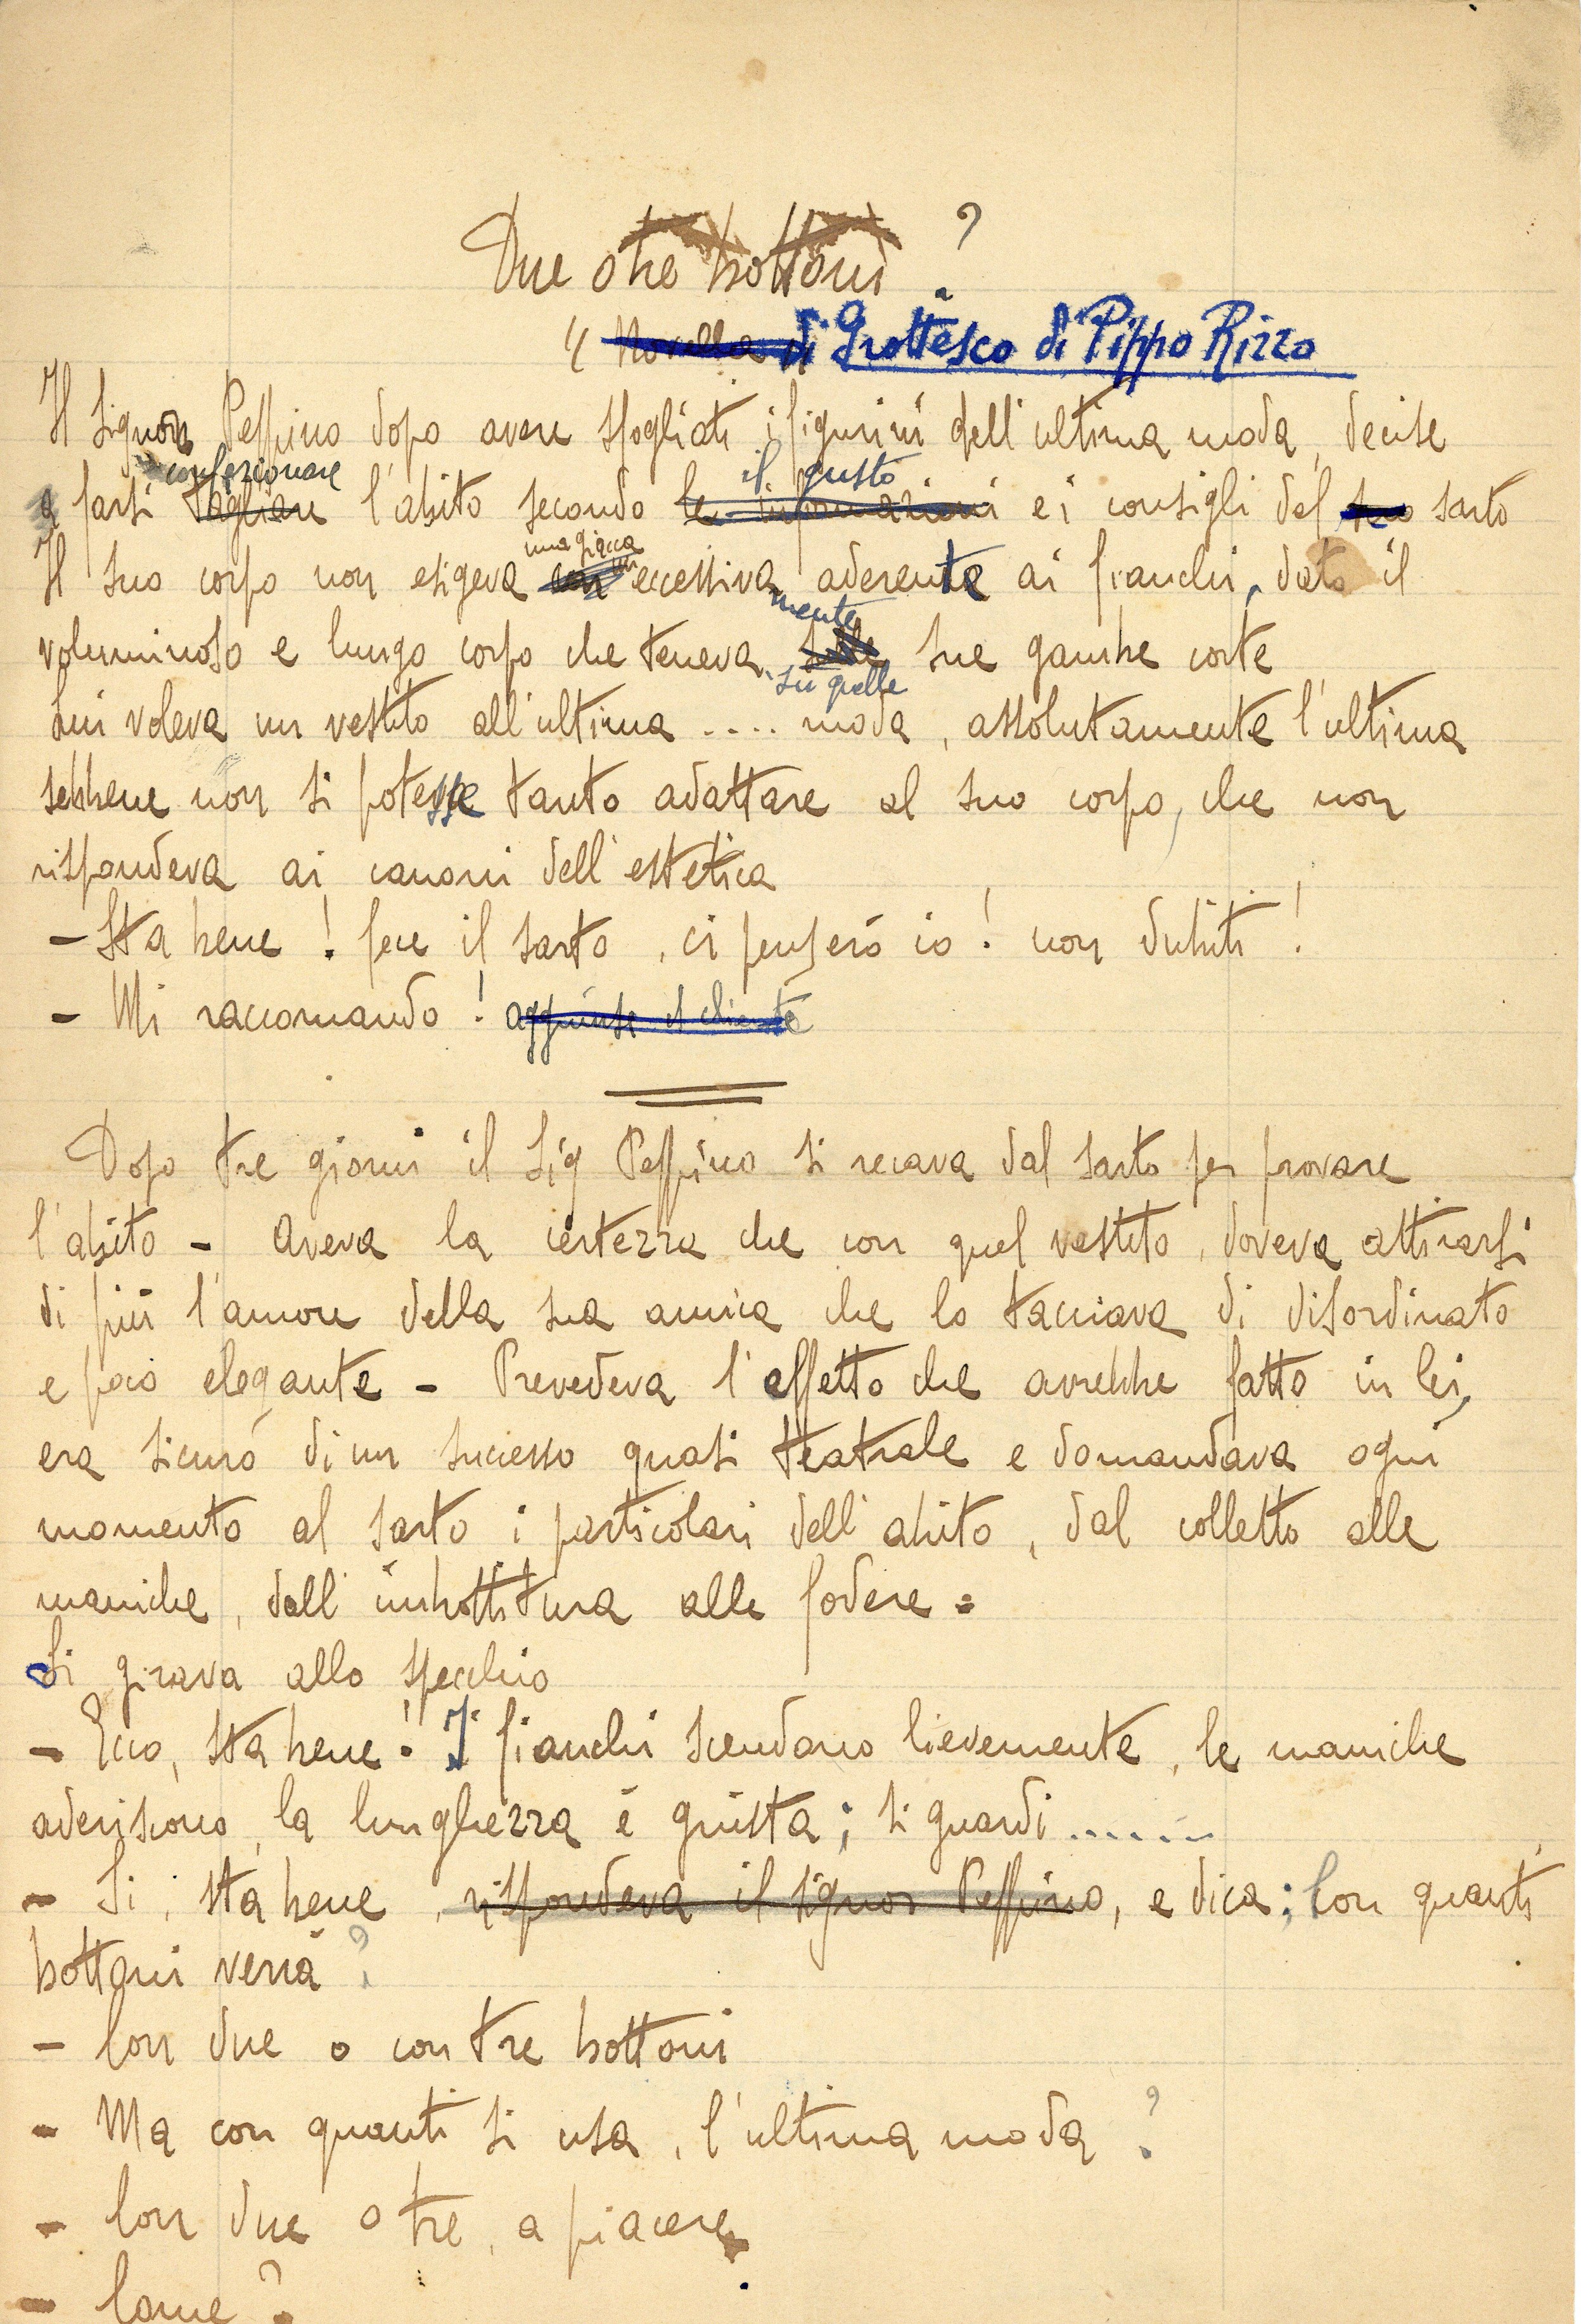 Due o tre bottoni ?
Novella di Grottesco di Pippo Rizzo
Il Signor Peppino dopo avere sfogliati i figurini dell'ultima moda, decise
confezionare il gusto
a farsi tagliare l'abito secondo le informazioni e i consigli del suo sarto
una giacca
Il suo corpo non esigeva eccessiva aderente ai fianchi, dato il
mente
voluminoso e lungo corpo che teneva sulle sue gambe corte
su quelle
Lui voleva un vestito all'ultima .... moda, assolutamente l'ultima
sebbene non si potesse tanto adattare al suo corpo, che non
rispondeva ai canoni dell'estetica
- Sta bene ! fece il sarto, ci penserò io ! non dubiti !
- Mi raccomando ! aggiunse il cliente
Dopo tre giorni il Sig Peppino si recava dal sarto per provare
l'abito - Aveva la certezza che con quel vestito, doveva attirarsi
di più l'amore della sua amica che lo tacciava di disordinato
e poco elegante - Prevedeva l'effetto che avrebbe fatto in lei,
era sicuro di un successo quasi teatrale e domandava ogni
momento al sarto i particolari dell'abito, dal colletto alle
maniche, dall'imbottitura alle fodere =
Si girava allo specchio
- Ecco, sta bene ! I fianchi scendono lievemente, le maniche
aderiscono, la lunghezza è giusta; si guardi .......
- Si, sta bene, rispondeva il signor Peppino, e dica; Con quanti
bottoni verrà ?
- Con due o con tre bottoni
- Ma con quanti si usa, l'ultima moda ?
- Con due o tre, a piacere
- Come ?